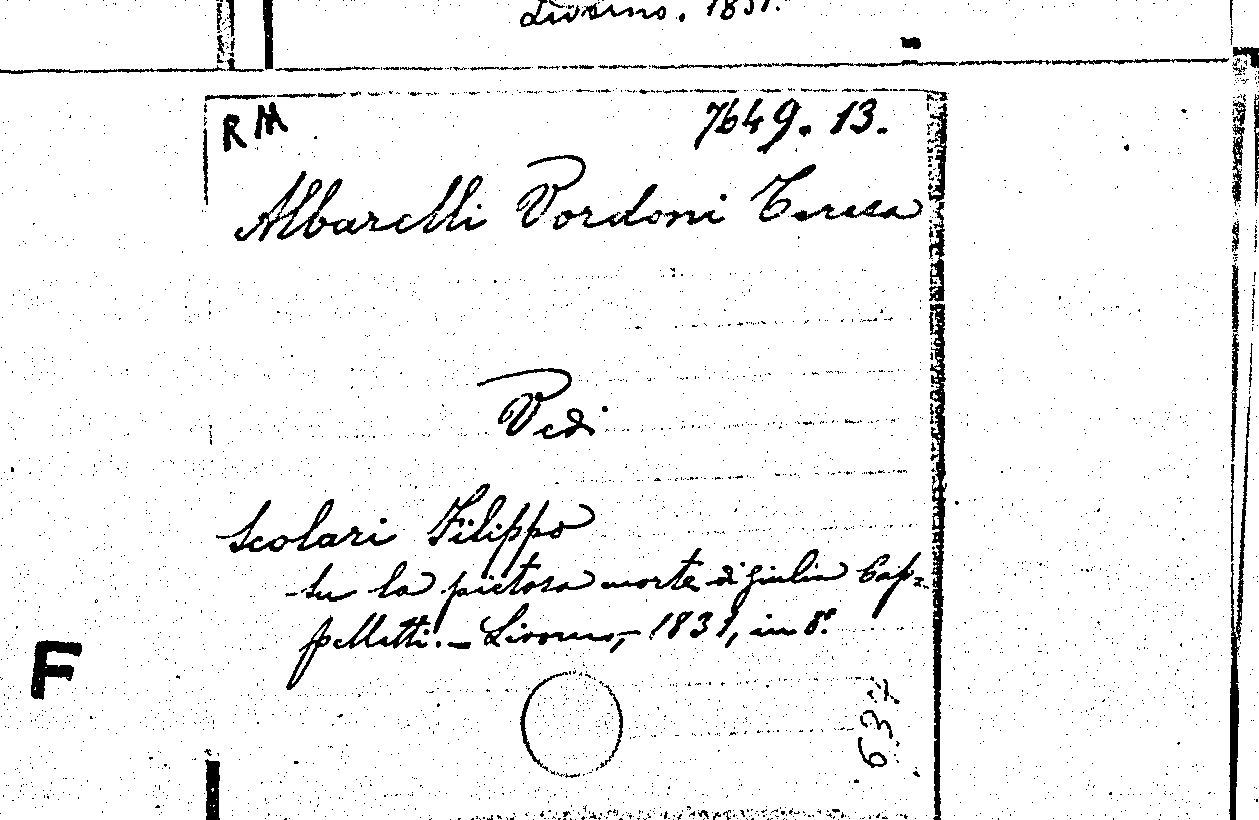 Livorno. 1831.
RM 7649. 13.
Albarelli Vordoni Teresa
Vedi
Scolari Filippo
Su la pietosa morte di Giulia Cap=
pelletti. - Livorno, - 1831, in 8.°
F
637